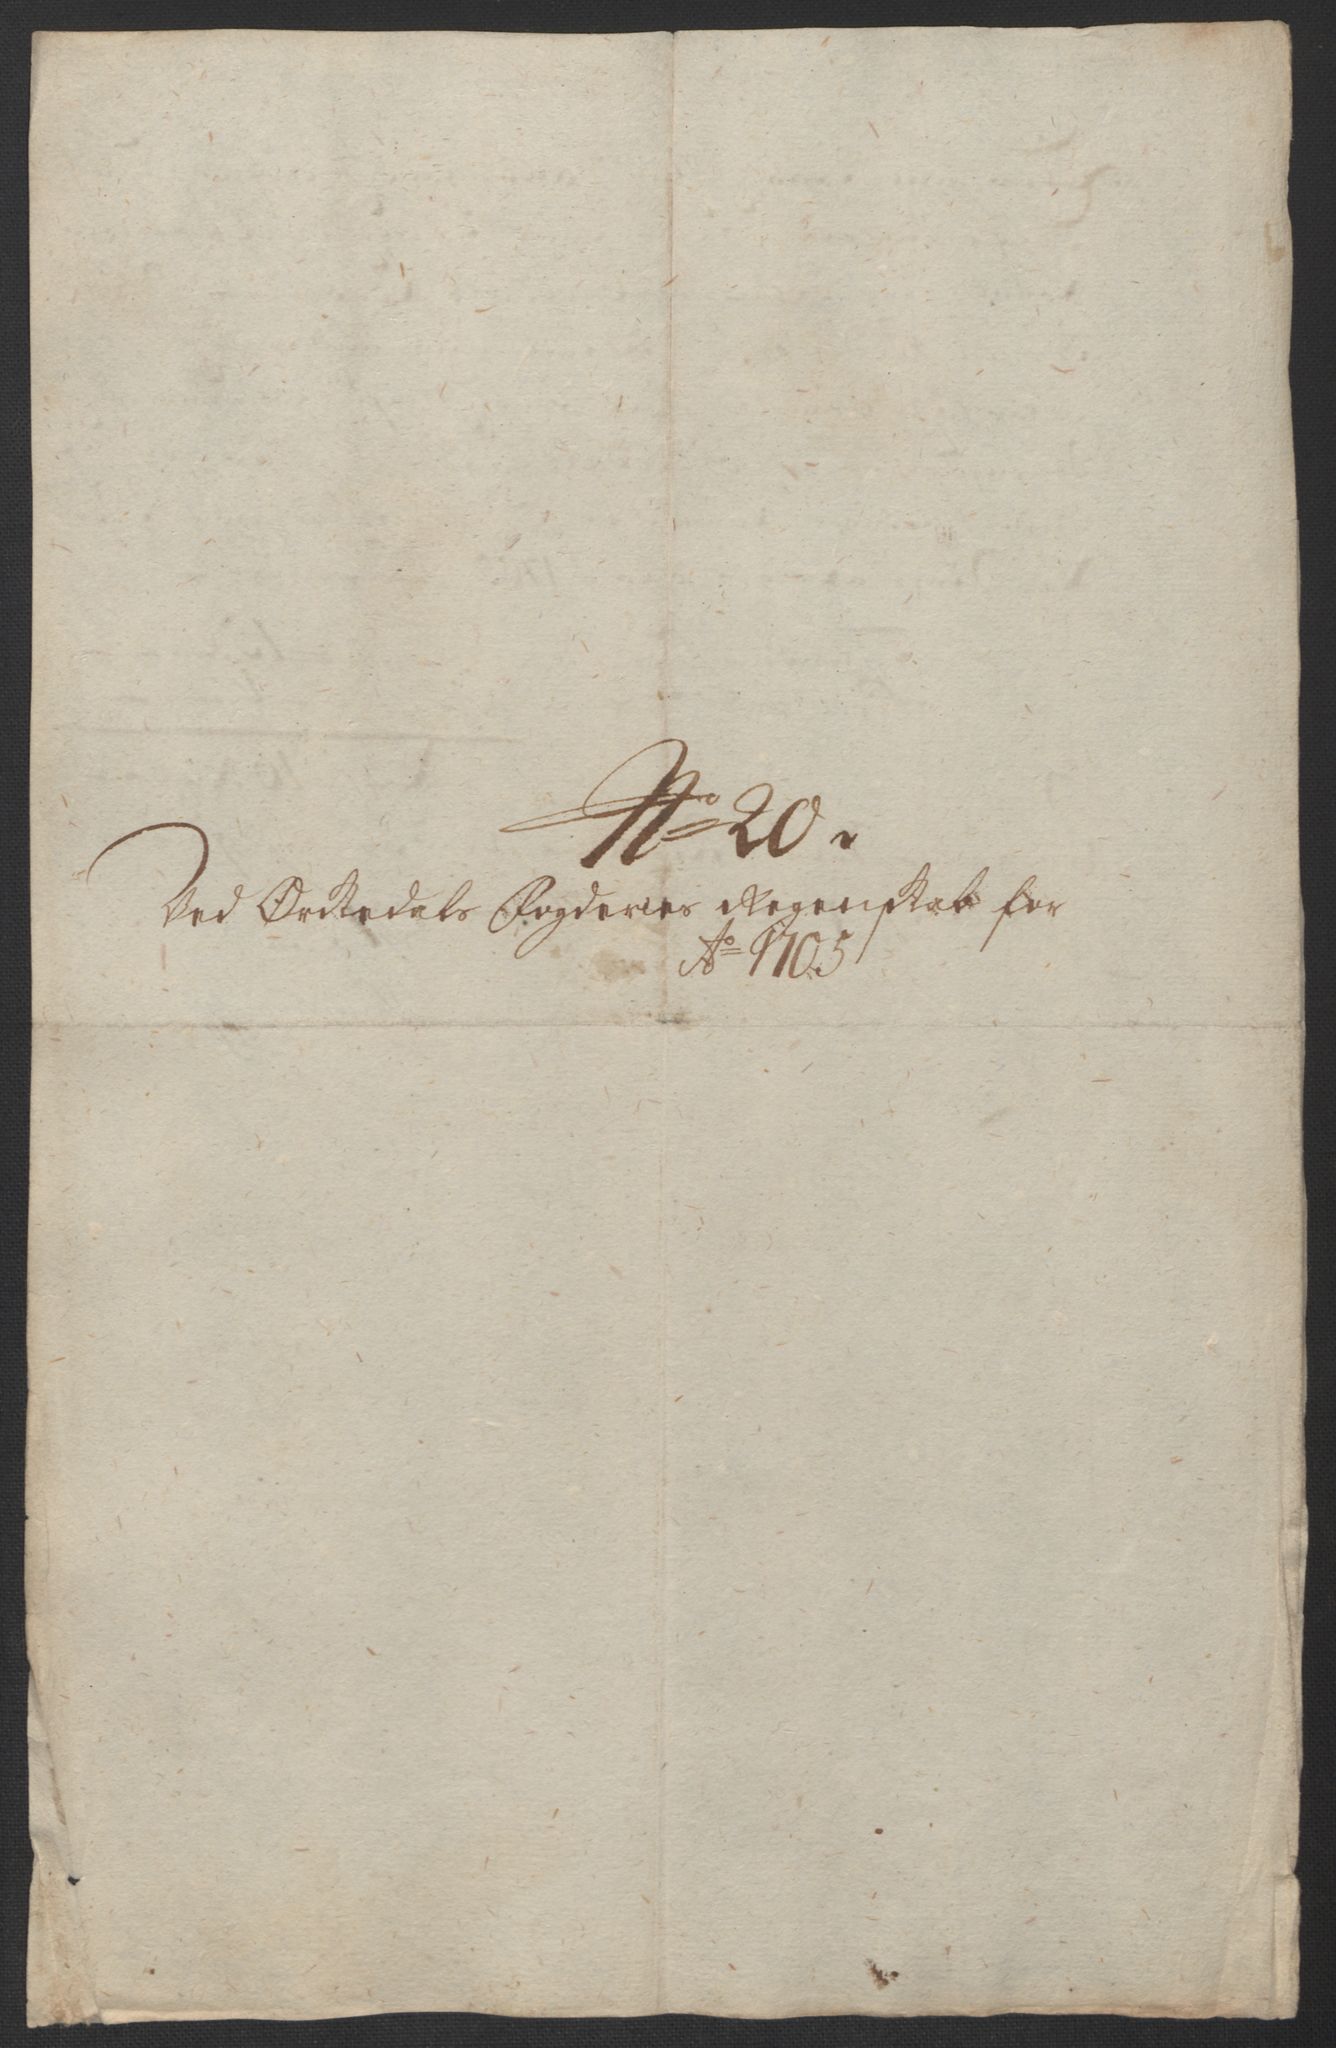 No 20.
Ved Ørckedals Fogderies Regenskab for
Ao 1705